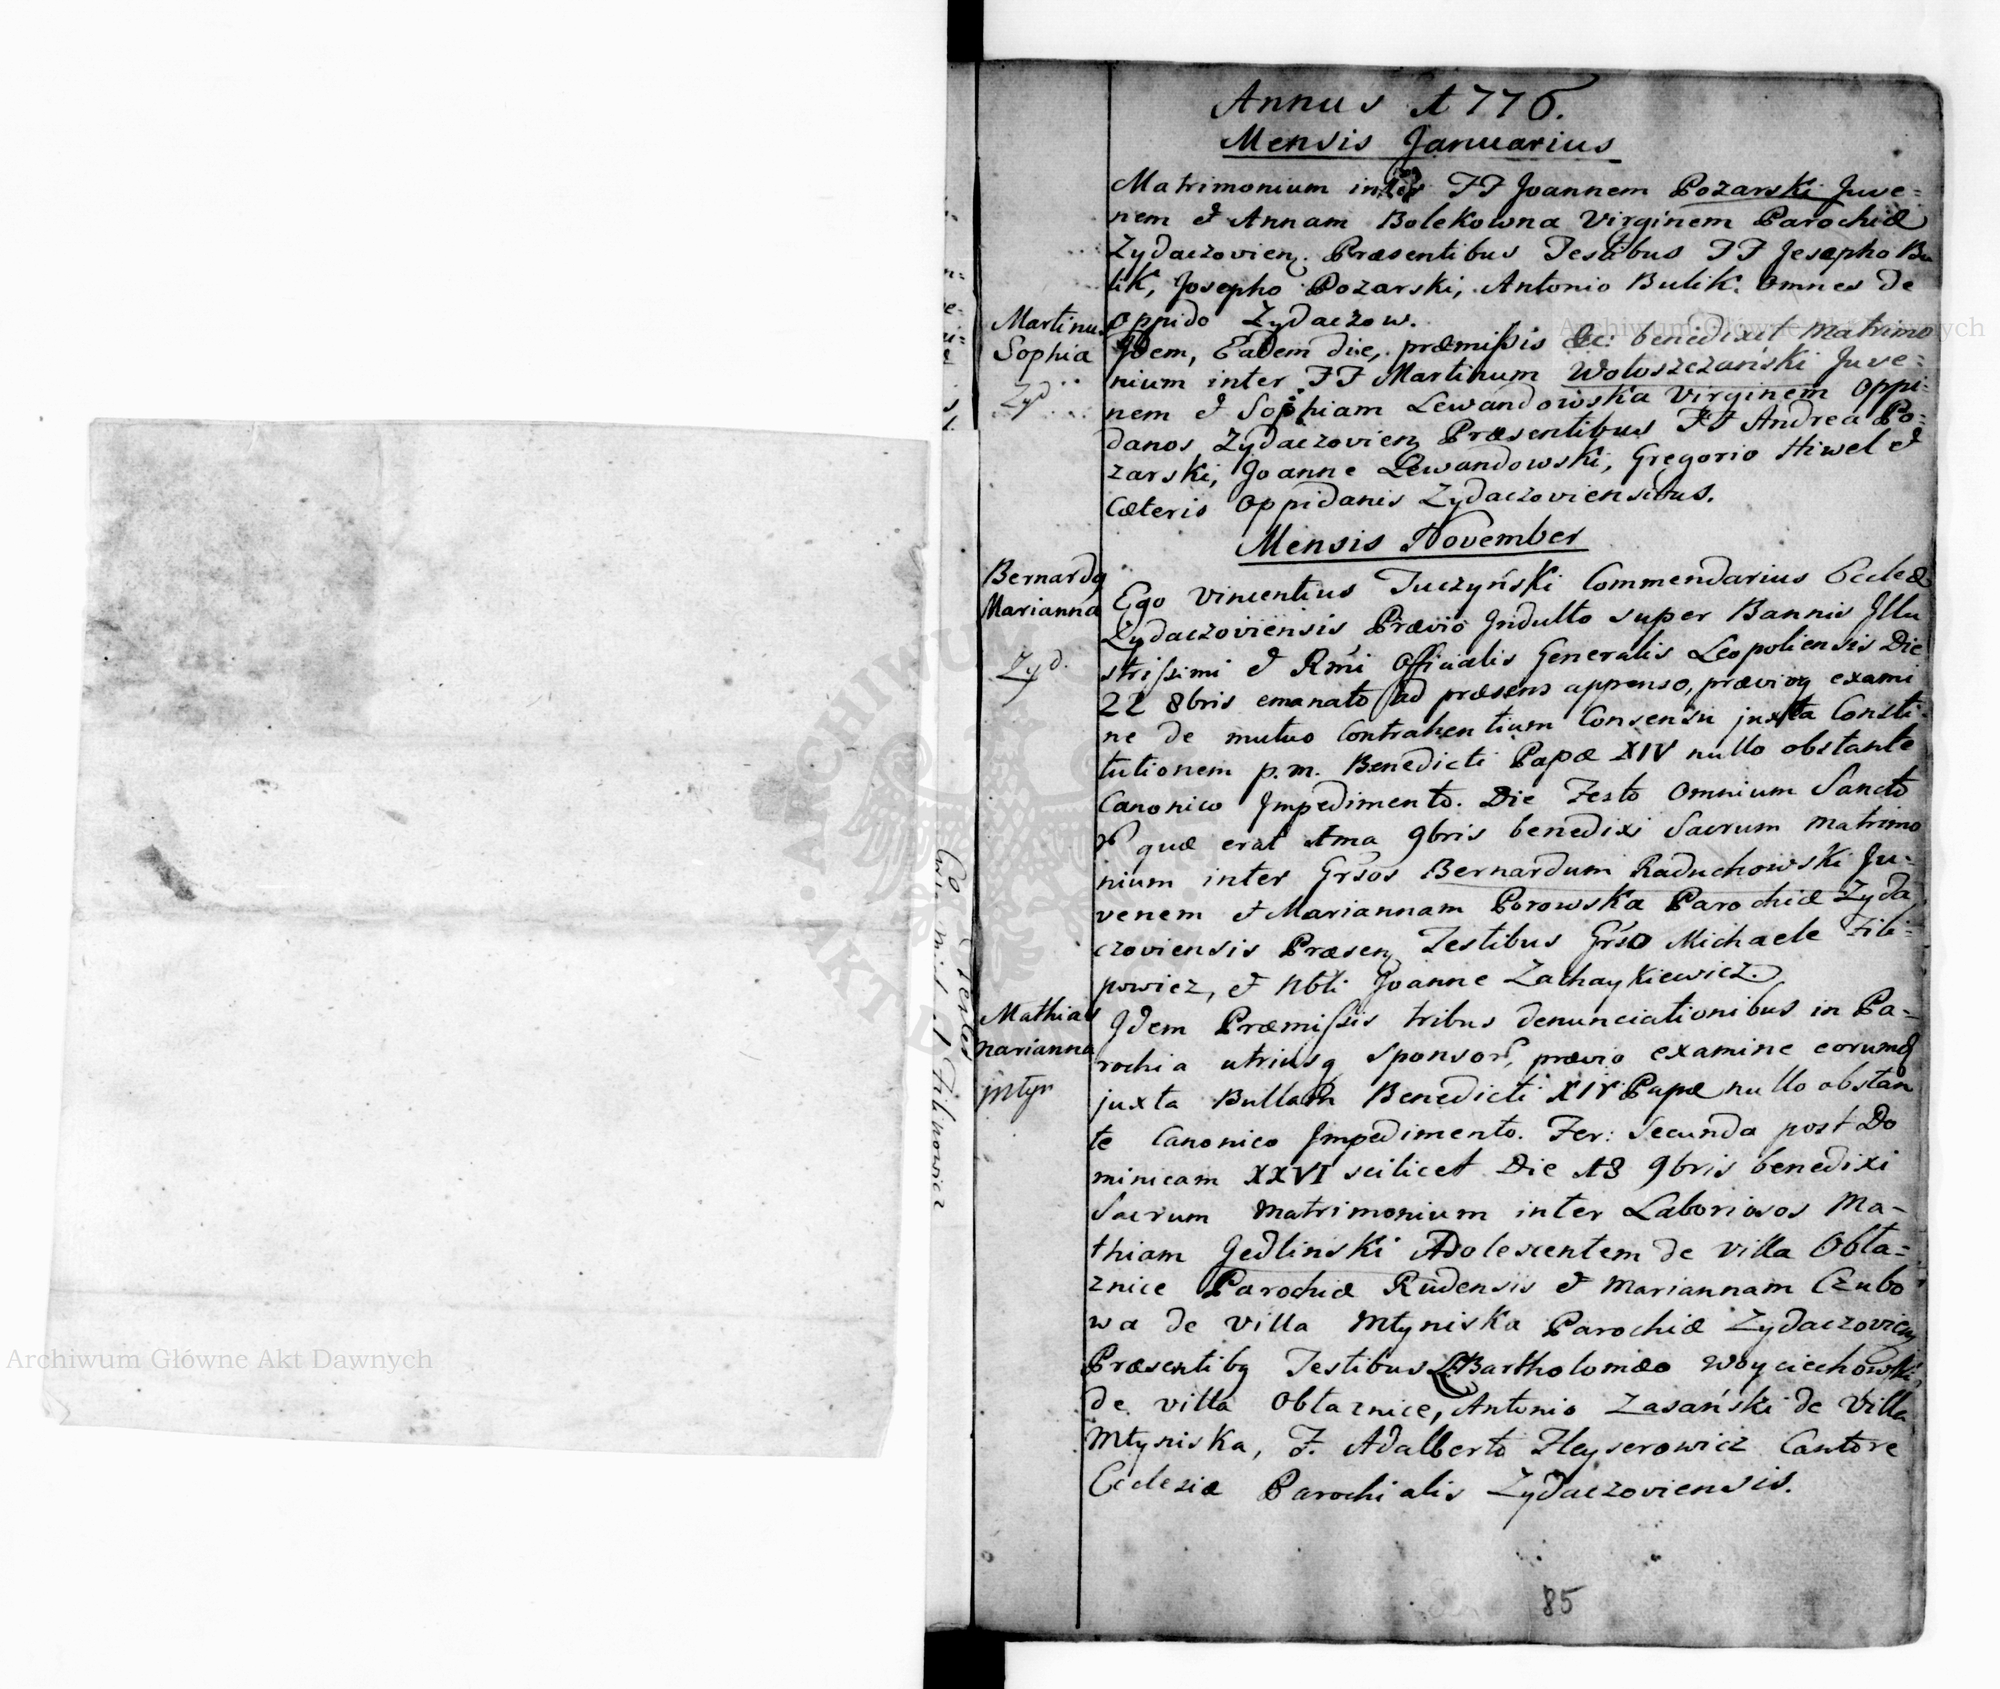 Annus 1776.
Mensis Januarius
Matrimonium inter FF Joannem Pozarski Juve=
nem et Annam Bolekowna Virginem Parochiæ
Zydaczovien. Præsentibus Testibus FF Josepho Bu
lik, Josepho Pozarski, Antonio Bulik. Omnes de
Oppido Zydaczow.
Martinus
Sophia
Zyd
Idem, Eadem die, præmissis &c: benedixit Matrimo
nium inter FF Martinum Wołoszczański Juve=
nem et Sophiam Lewandowska Virginem Oppi=
danos Zydaczovien Præsentibus FF Andrea Po=
zarski, Joanne Lewandowski, Gregorio Hiwel et
Cæteris Oppidanis Zydaczoviensibus.
Mensis November
Bernardq
Marianna
Zyd.
Ego Vincentius Tuczyński Commendarius Eccleæ
Zydaczoviensis Prævio Indulto super Bannis Illu
strissimi et Rmi Officialis Generalis Leopoliensis Die
22 8bris emanato ad præsens appenso, prævioq exami
ne de mutuo Contrahentium Consensu juxta Consti
tutionem p.m. Benedicti Papæ XIV nullo obstante
Canonico Impedimento. Die Festo Omnium Sancto
r quæ erat 1ma 9bris benedixi Sacrum Matrimo
nium inter Grsos Bernardum Raduchowski Ju=
venem et Mariannam Borowska Parochiæ Zyda
czoviensis Præsen Testibus Grso Michaele Fili=
powicz, et Nbli Joanne Zachaykiewicz.
Mathias
Marianna
Młyn
Idem Præmissis tribus denunciationibus in Pa=
rochia utriusq Sponsor, prævio examine eorumq
juxta Bullam Benedicti XIV Papæ nullo obstan
te Canonico Impedimento. Fer: Secunda post Do
minicam XXVI scilicet Die 18 9bris benedixi
Sacrum Matrimonium inter Laboriosos Ma=
thiam Jedlinski Adolescentem de Villa Obła=
znice Parochiæ Rudensis et Mariannam Czubo
wa de Villa Młyniska Parochiæ Zydaczovien
Præsentibq Testibus L. Bartholomæo Woyciechowski,
de villa Obłaznice, Antonio Zasański de Villa
Młyniska, F. Adalberto Fleyserowicz Cantore
Ecclesiæ Parochialis Zydaczoviensis.
85
Filipowicz
Archiwum Główne Akt Dawnych
Archiwum Główne Akt Dawnych